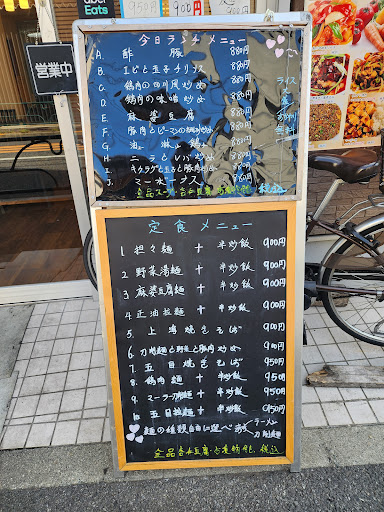 Uber
Eats
950円
900円
営業中
今日ランチメニュー
A. 酢豚 880円
B. エビと玉子チリソース 880円
C. 鶏肉の四川風炒め 880円
D. 鶏肉の味噌炒め 880円
E. 麻婆豆腐 880円
F. 豚肉とピーマンの細切り炒め 880円
G. 油淋鶏 880円
H. ニラとレバ炒め 880円
I. キクラゲと玉子と豚肉炒め 880円
J. マーボーナス 880円
ライス大盛おかわり無料
全品スープ・杏仁豆腐 税込
定食メニュー
1 担々麺 + 半炒飯 900円
2 野菜湯麺 + 半炒飯 900円
3 麻婆豆腐麺 + 半炒飯 900円
4 正油拉麺 + 半炒飯 900円
5 上海焼きそば 900円
6 刀削麺と野菜と豚肉炒め 900円
7 五目焼きそば 950円
8 鶏肉麺 + 半炒飯 950円
9 マーラー刀削麺 + 半炒飯 950円
10 五目拉麺 + 半炒飯 950円
麺の種類自由に選べ ラーメン
刀削麺
全品杏仁豆腐 税込